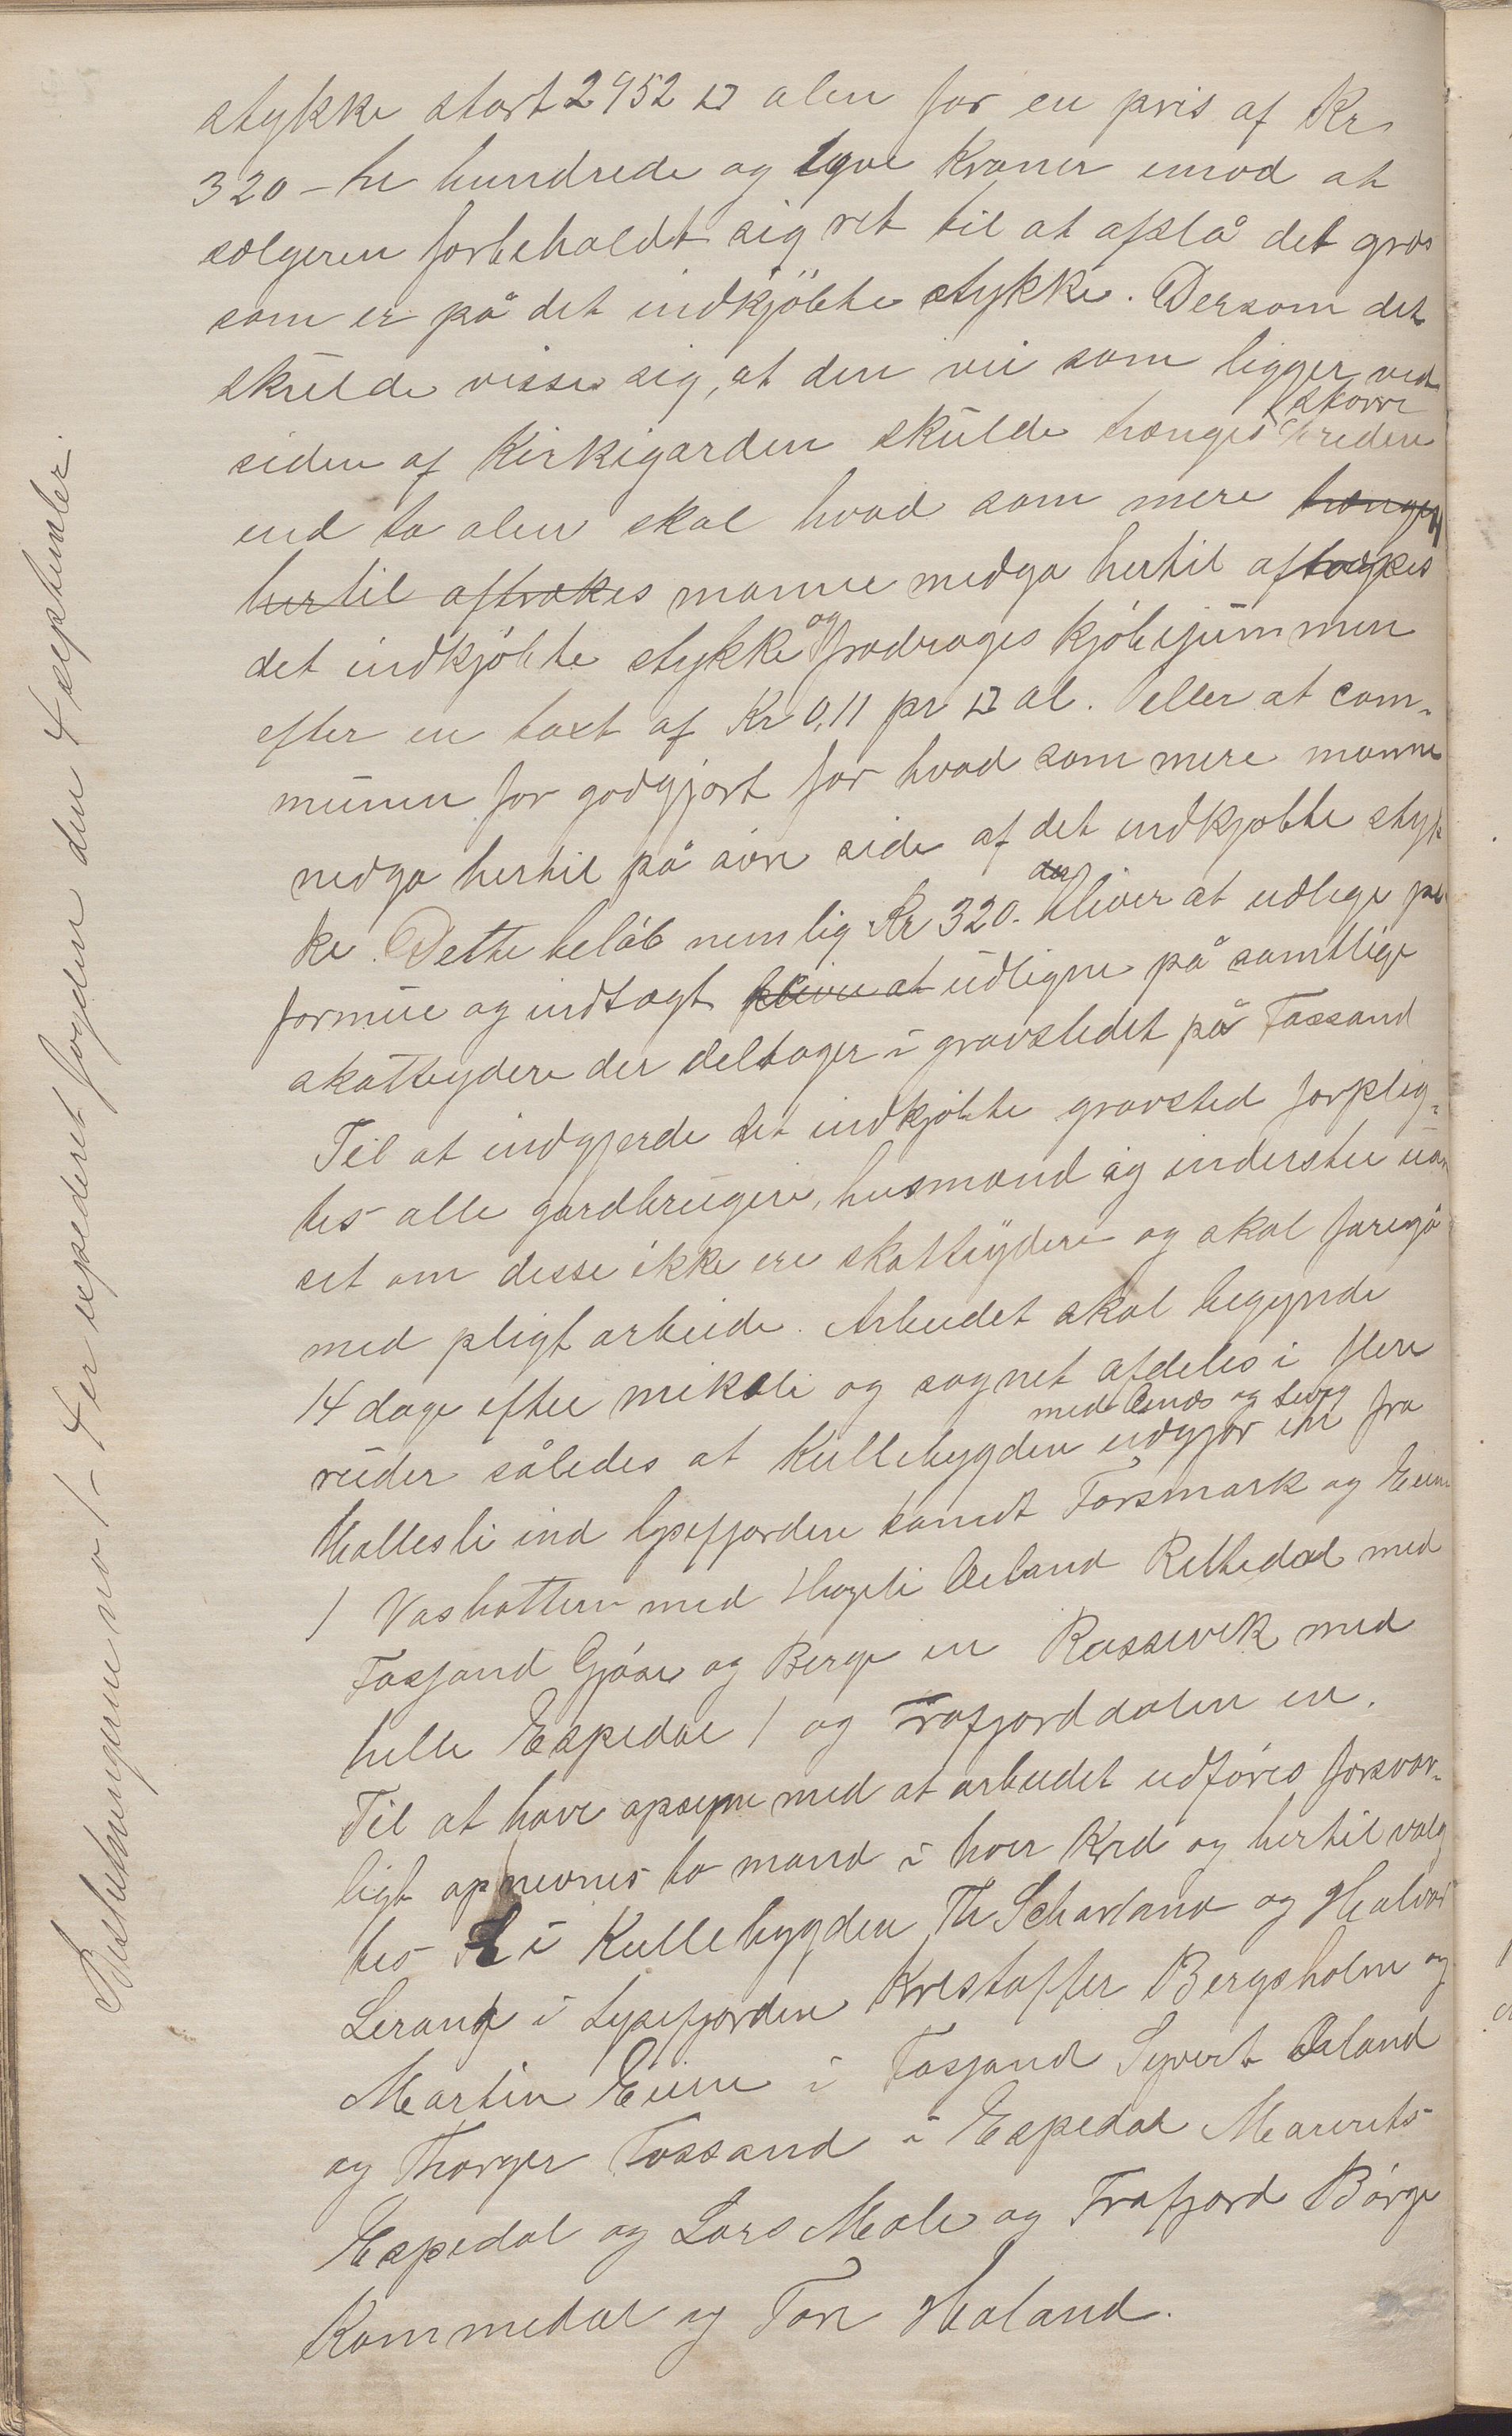 stykke stort 2952 □ alen for en pris af Kr
320 – tre hundrede og tyve Kroner imod at
sælgeren forbeholdt sig ret til at afslå det græs
som er på det indkjöbte stykke. Dersom det
skulde visse sig, at den vei som ligger ved
siden af Kirkegarden skulde trænges större bredere
end to alen skal hvad som mere trænges
hertil aftrækes manne medga hertil aftrækes
det indkjöbte stykke og fradrages kjöbesummen
efter en taxt af Kr 0,11 pr □ al. eller at com-
munen for godgjort for hvad som mere monne
medga hertil på siden af det indkjøbte styk
ke. Dette belöb nemlig Kr 320. der bliver at udlige på
formue og indtægt blive at udligne på samtlige
skatteydere der deltager i gravstedet på Fossand
Til at indgjerde det indkjöbte gravsted forplig-
tes alle gardbrugere, husmænd og inderster uan
set om desse ikke ere skatteydere og skal foregå
med pligtarbeide. Arbeidet skal begynde
14 dage efter mikali og sognet afdeles i flere
roder således at Kullebygden med Aanes og Levig udgjør en fra
Mallesli ind Lysefjorden samt Forsmark og Eiune
1 Vasbotten med Hageli Aeland Rettedal med
Fossand Gjöse og Berge en Rossevik med
helle Espedal 1 og Frafjorddalen en.
Til at have opsyn med at arbeidet udføres forsvar-
ligt opnevnes to mand i hver Krd og hertil valg
tes i Kullebygden Th Scharland og Halvor
Lerang i Lysefjorden Kristoffer Bergsholm og
Martin Eiune i Fossand Syvert Aeland
og Thorger Fossand i Espedal Maurits
Espedal og Lars Mæle og Frafjord Börge
Kommedal og Tore Haland.
Beslutningerne no 1 – 4 er expederet fogden den 4 september.